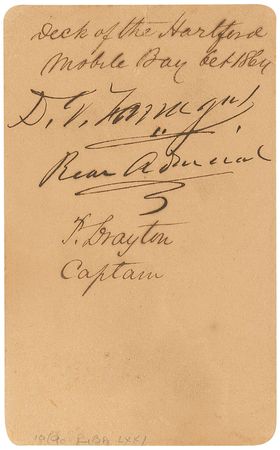 Deck of the Hartford
Mobile Bay Oct 1864
D. G. Farragut
Rear Admiral
P. Drayton
Captain